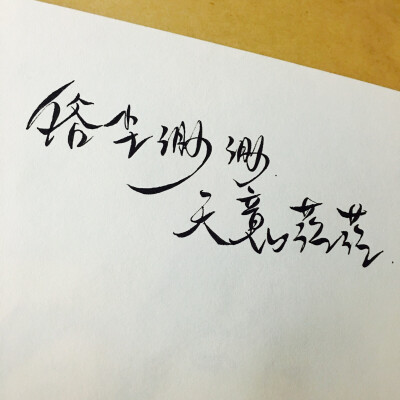 俗尘渺渺
天意茫茫